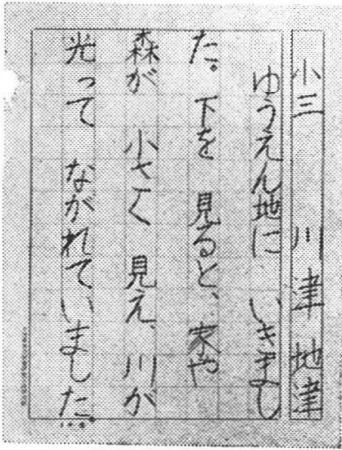 小三 川津 地津
ゆうえん地に いきまし
た。下を 見ると、家や
森が 小さく 見え、川が
光って ながれていました。